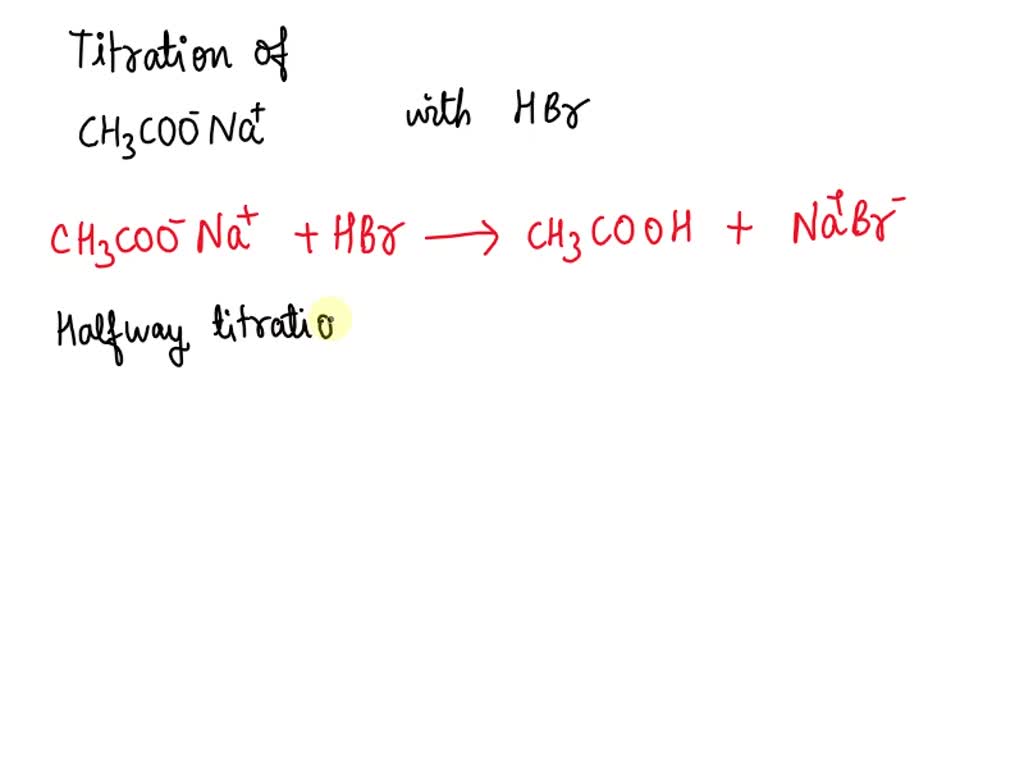 Titration of
CH₃COO⁻Na⁺ with HBr
CH₃COO⁻Na⁺ + HBr ⟶ CH₃COOH + Na⁺Br⁻
Halfway titratio